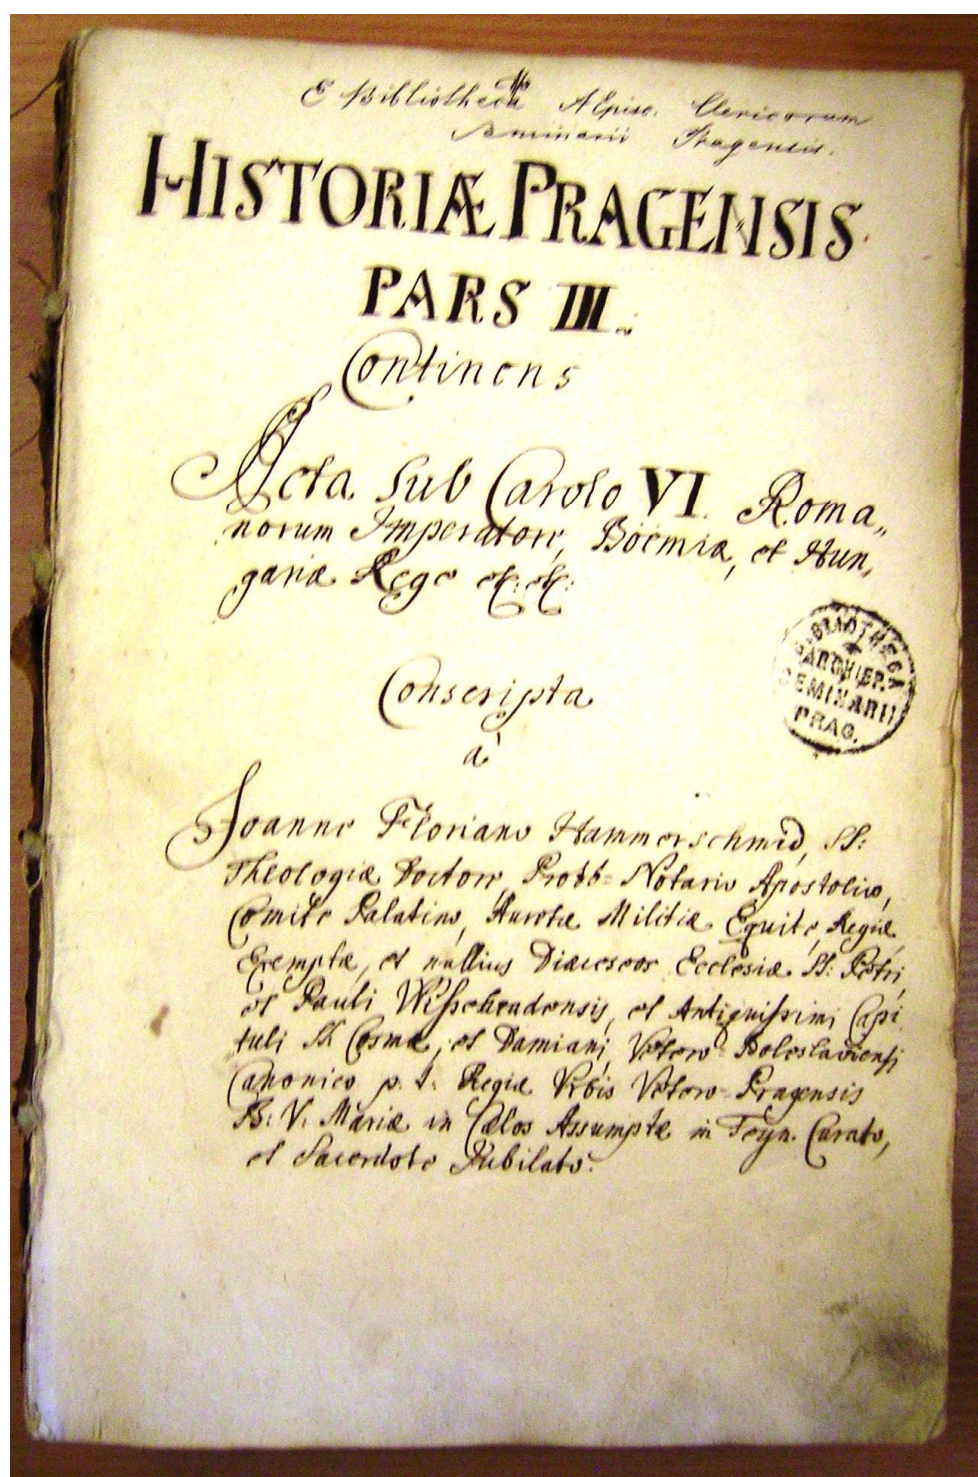 E Bibliotheca AEpisc. Clericorum
Seminarii Pragensis.
HISTORIÆ PRAGENSIS
PARS III.
Continens
Acta Sub Carolo VI. Roma„
norum Imperatore, Boemiæ, et Hun„
gariæ Rege &c: &c:
Conscripta
à
Joanne Floriano Hammerschmid, SS:
Theologiæ Doctore, Notario Apostolico,
Comite Palatino, Auratæ Militiæ Equite, Regiæ,
Exemptæ, et nullius Diæceseos Ecclesiæ SS: Petri,
et Pauli Wissehradensis, et Antiquissimi Capi
tuli SS Cosmæ, et Damiani, Vetero-Boleslaviensis
Canonico p. t. Regiæ Urbis Vetero-Pragensis
B: V. Mariæ in Cælos Assumptæ in Teyn. Curato,
et Sacerdote Jubilato.
BIBLIOTHECA
ARCHIEP.
SEMINARII
PRAG.